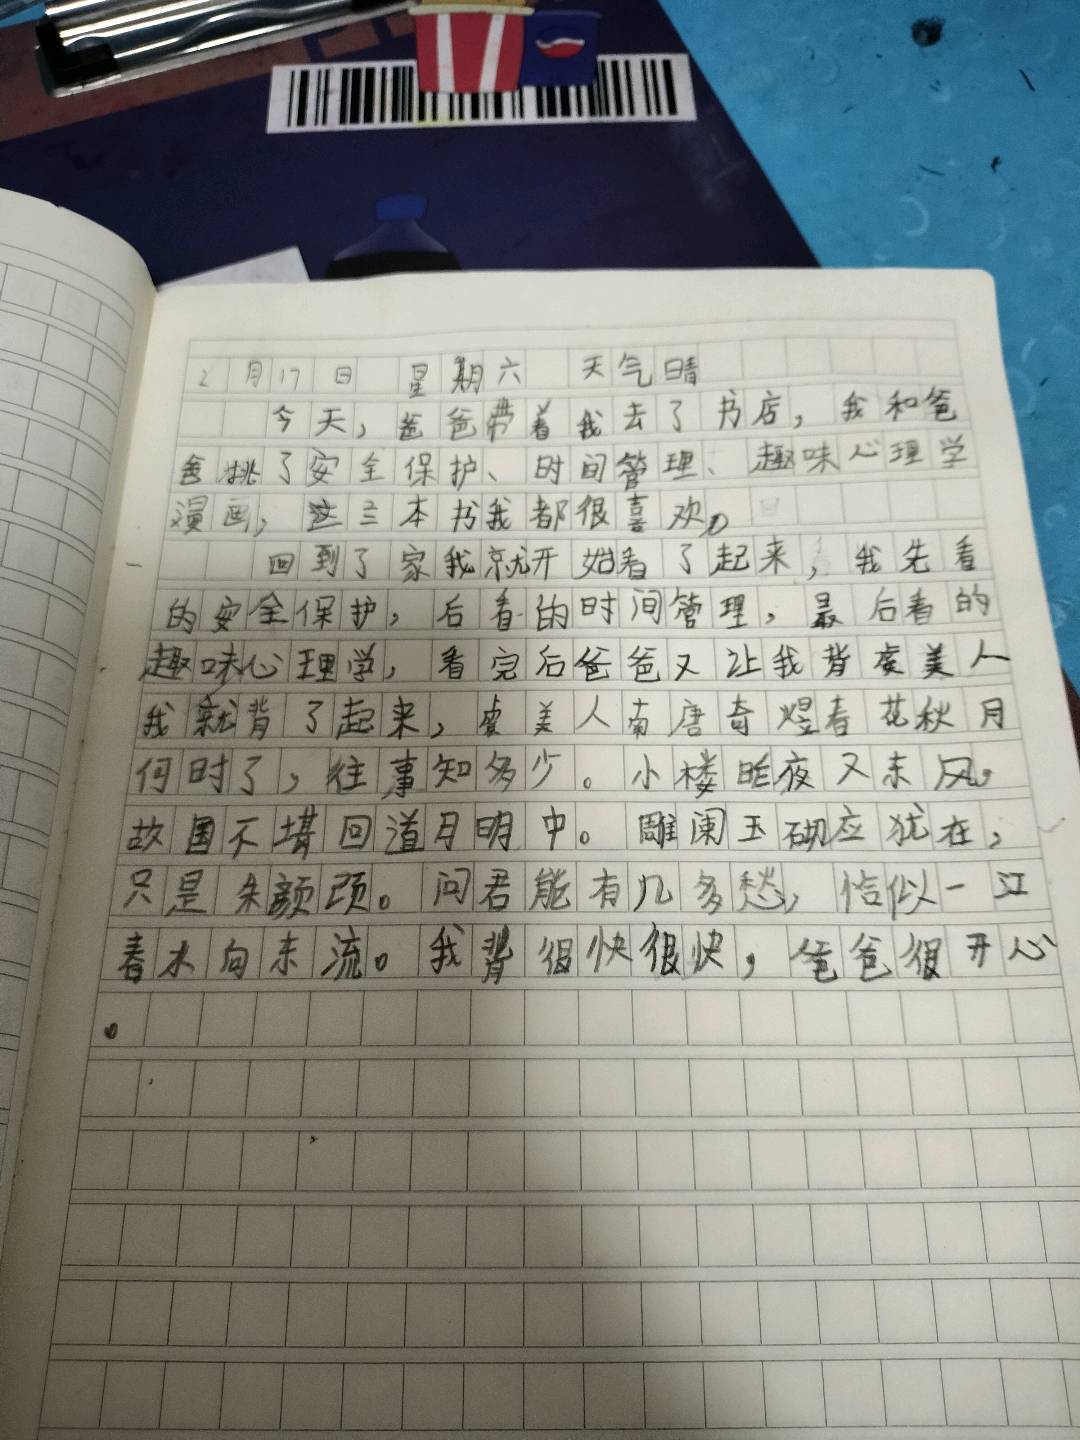 2月17日 星期六 天气晴
今天，爸爸带着我去了书店，我和爸
爸挑了安全保护、时间管理、趣味心理学
漫画，这三本书我都很喜欢。
回到了家我就开始看了起来，我先看
的安全保护，后看的时间管理，最后看的
趣味心理学，看完后爸爸又让我背虞美人
我就背了起来，虞美人南唐奇煜春花秋月
何时了，往事知多少。小楼昨夜又东风，
故国不堪回道月明中。雕阑玉砌应犹在，
只是朱颜改。问君能有几多愁，恰似一江
春水向东流。我背很快很快，爸爸很开心
。